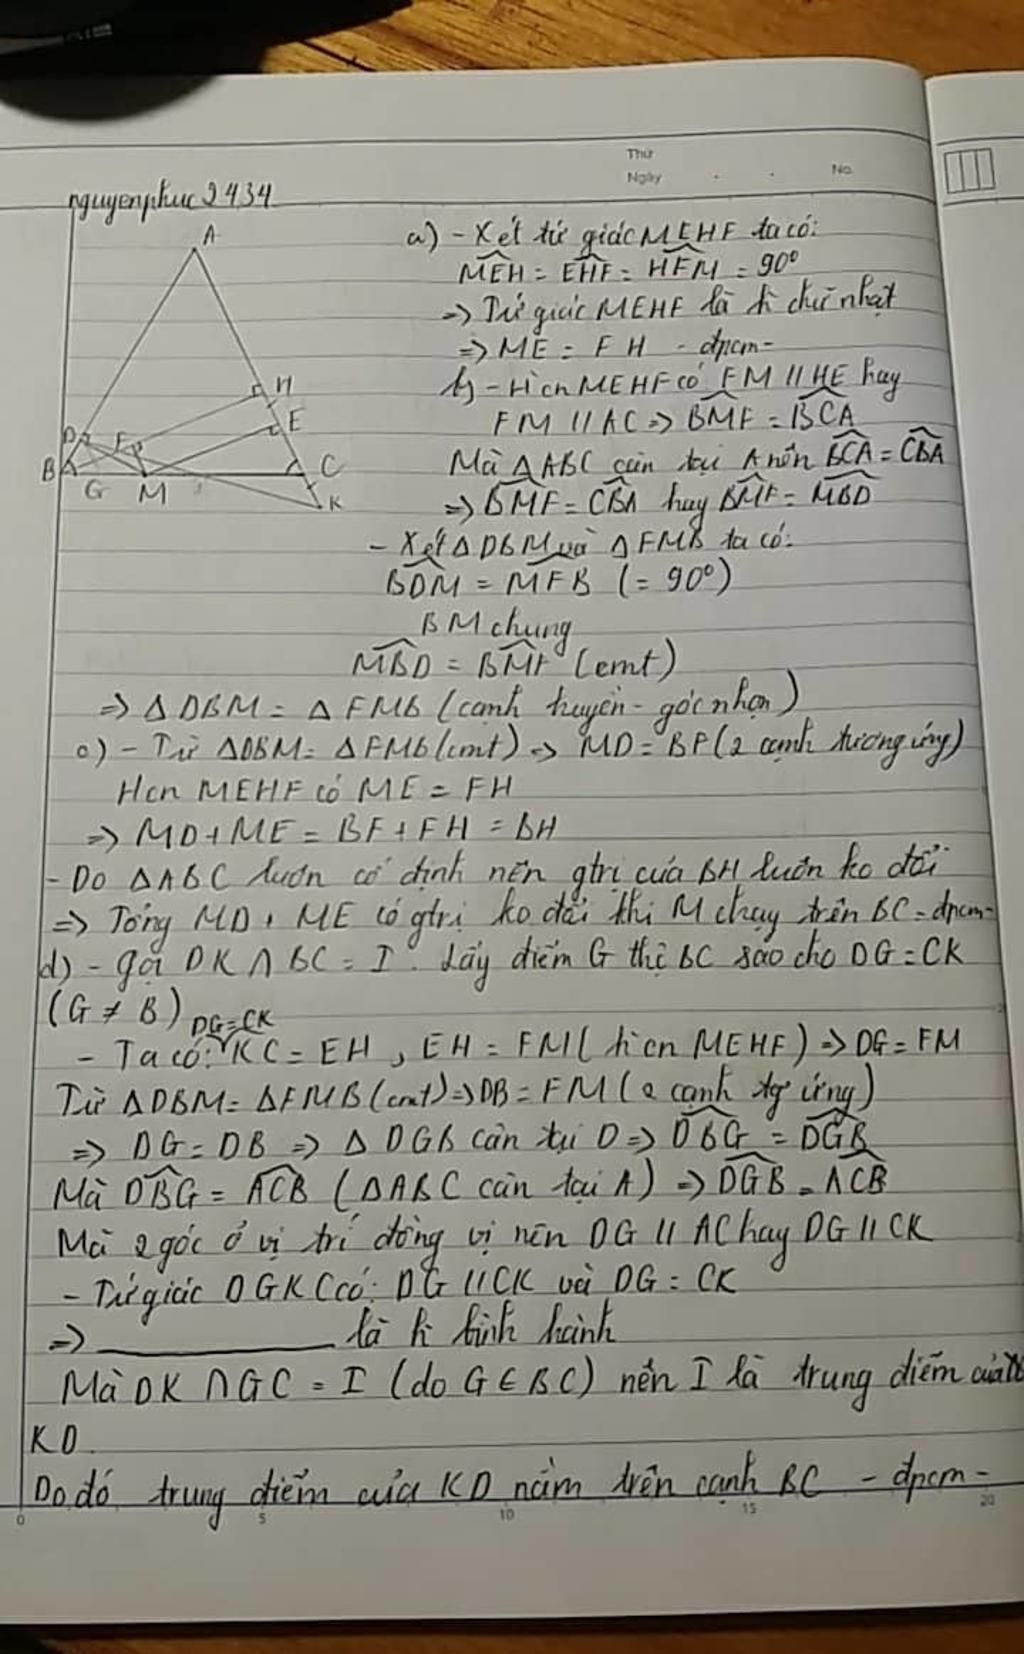 Thứ
Ngày
No.
nguyenphuc2434
A
H
E
D
F
B
G
M
C
K
a) - Xét tứ giác MEHF ta có:
MEH = EHF = HFM = 90°
=> Tứ giác MEHF là h chữ nhật
=> ME = FH - đpcm -
b) - Hcn MEHF có FM // HE hay
FM // AC => BMF = BCA
Mà △ABC cân tại A nên BCA = CBA
=> BMF = CBA hay BMF = MBD
- Xét △DBM và △FMB ta có:
BDM = MFB (= 90°)
BM chung
MBD = BMF (cmt)
=> △DBM = △FMB (cạnh huyền - góc nhọn)
c) - Từ △DBM = △FMB (cmt) => MD = BF (2 cạnh tương ứng)
Hcn MEHF có ME = FH
=> MD + ME = BF + FH = BH
- Do △ABC luôn cố định nên gtrị của BH luôn ko đổi
=> Tổng MD + ME có gtrị ko đổi khi M chạy trên BC - đpcm -
d) - Gọi DK ∩ BC = I. Lấy điểm G thị BC sao cho DG = CK
(G ≠ B)
DG = CK
- Ta có: KC = EH, EH = FM (hcn MEHF) => DG = FM
Từ △DBM = △FMB (cmt) => DB = FM (2 cạnh tg ứng)
=> DG = DB => △DGB cân tại D => DBG = DGB
Mà DBG = ACB (△ABC cân tại A) => DGB = ACB
Mà 2 góc ở vị trí đồng vị nên DG // AC hay DG // CK
- Tứ giác DGKC có: DG // CK và DG = CK
=> ________ là h bình hành
Mà DK ∩ GC = I (do G ∈ BC) nên I là trung điểm của
KD.
Do đó trung điểm của KD nằm trên cạnh BC - đpcm -
0 5 10 15 20